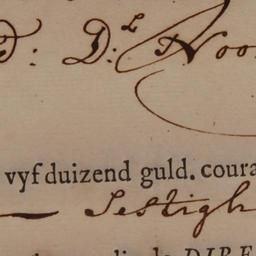 D:L Noo
vyf duizend guld. coura
— Sestigh
DIRE